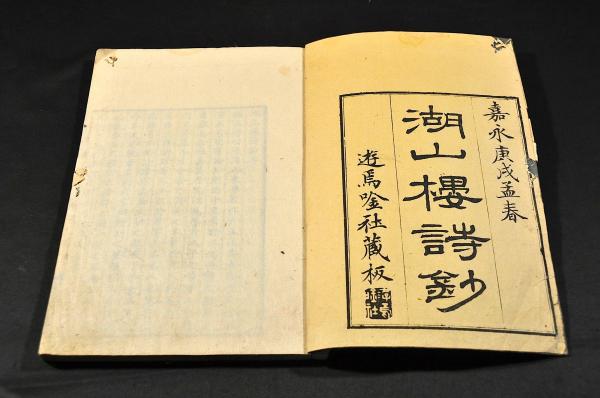 嘉永庚戌孟春
湖山樓詩鈔
遊焉唫社藏板